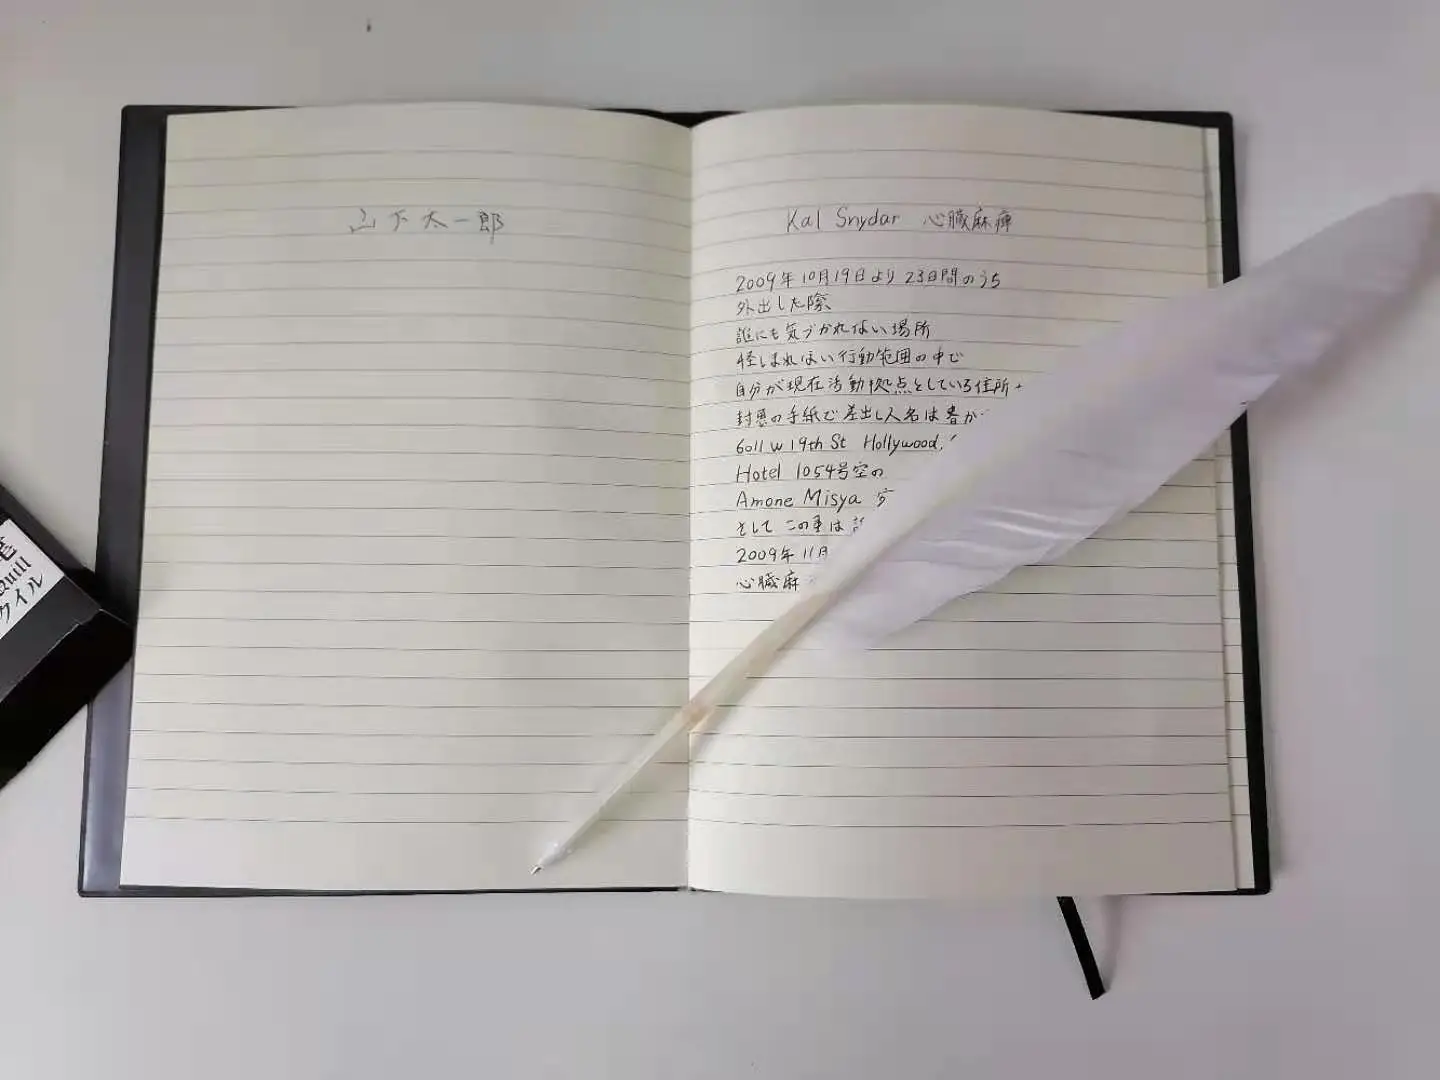 山下太一郎
Kal Snydar 心臓麻痺
2009年10月19日より23日間のうち
外出した際
誰にも気づかれない場所
怪しまれない行動範囲の中で
自分が現在活動拠点としている住所
封書の手紙で差出し人名は書か
6011 W 19th St Hollywood.
Hotel 1054号室の
Amone Misya 宛
そしてこの事は
2009年11月
心臓麻
筆
Quill
クイル